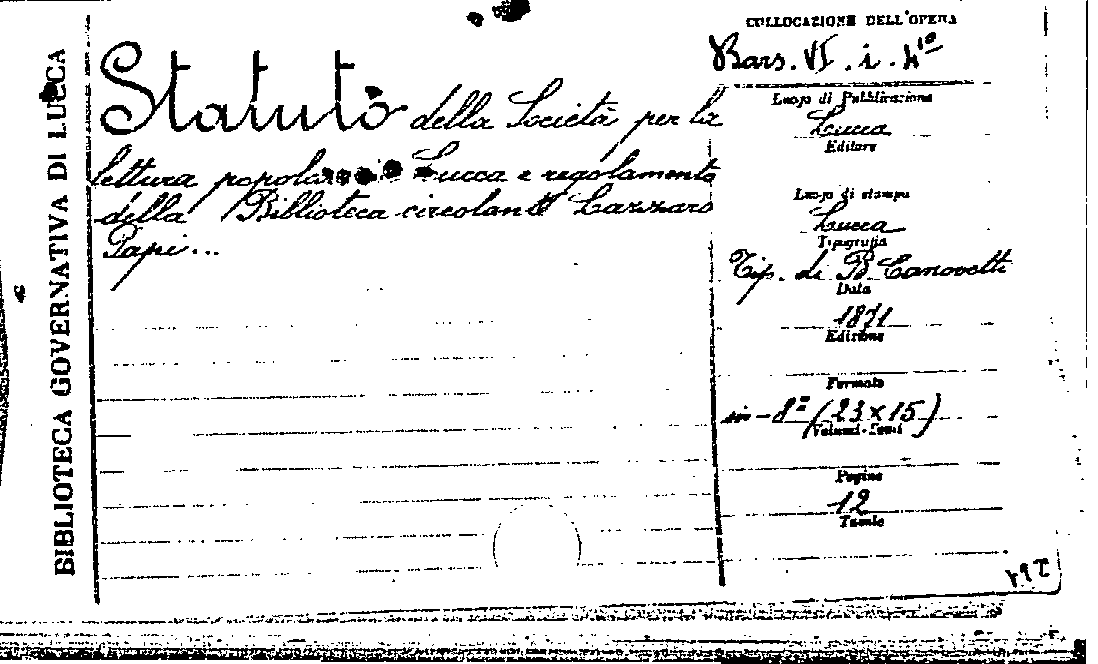 BIBLIOTECA GOVERNATIVA DI LUCCA
Statuto della Società per la
lettura popola Lucca e regolamento
della Biblioteca circolante Lazzaro
Papi...
COLLOCAZIONE DELL'OPERA
Bars. VI. i. 4º
Luogo di Pubblicazione
Lucca
Editore
Luogo di stampa
Lucca
Tipografia
Tip. di B. Canovetti
Data
1871
Edizione
Formato
in-8º (23 x 15)
Volumi-Tomi
Pagine
12
Tavole